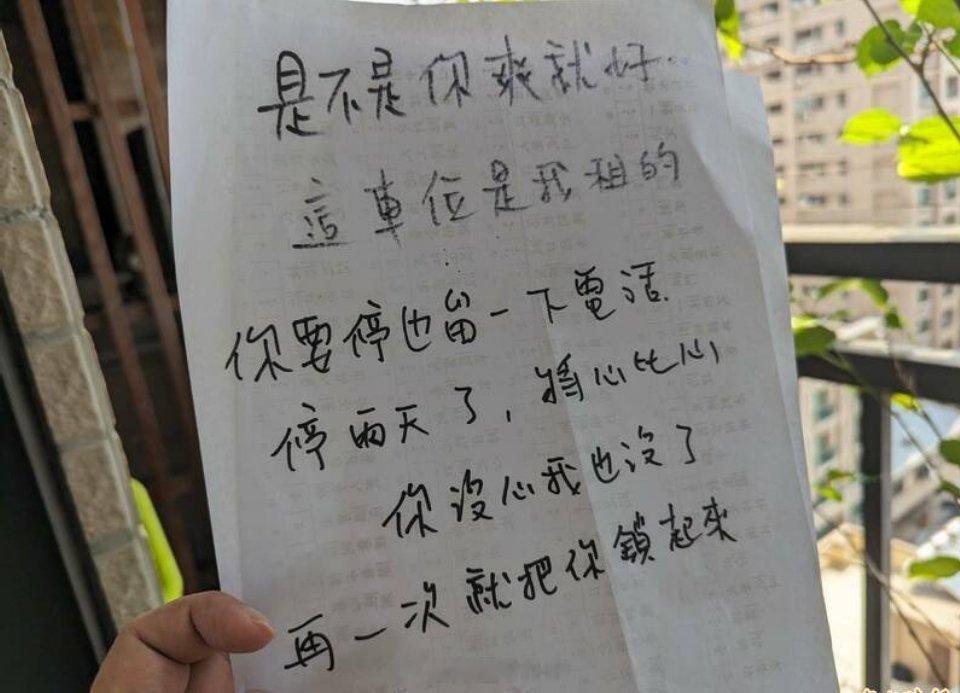 是不是你爽就好
這車位是我租的
你要停也留一下電話
停兩天了，將心比心
你沒心我也沒了
再一次就把你鎖起來